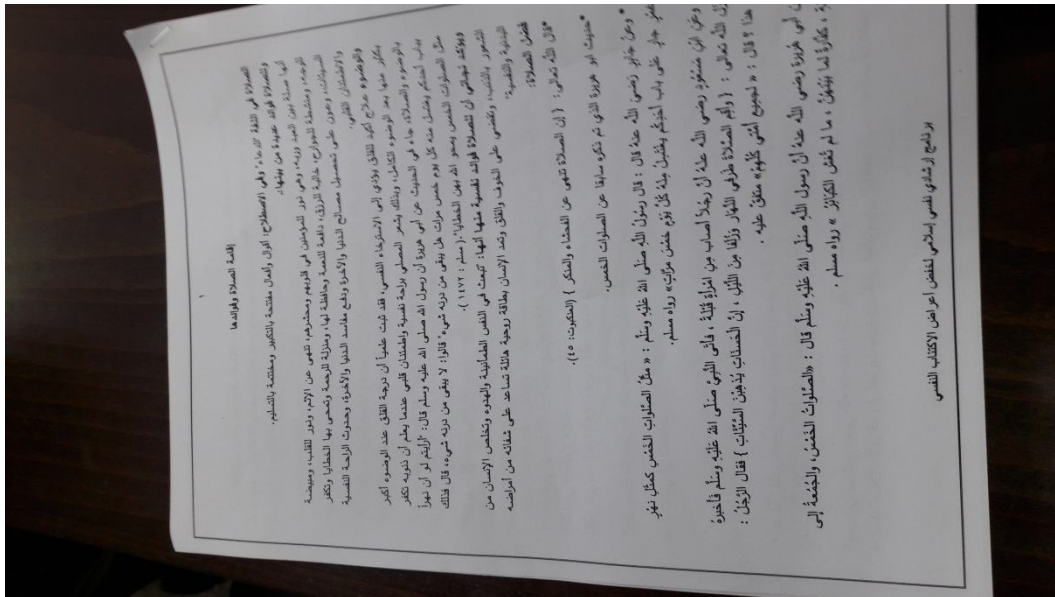 ١
إقامة الصلاة وفوائدها
الصلاة في اللغة "الدعاء" وفي الاصطلاح: أقوال وأفعال مفتتحة بالتكبير ومختتمة بالتسليم.
وللصلاة فوائد عديدة من بينها:
أنها صلة بين العبد وربه، وهي نور للمؤمنين في قلوبهم ومحشرهم، تنهى عن الإثم، ونور للقلب، ومبيضة
للوجه، ومنشطة للجوارح، جالبة للرزق، دافعة للنقمة وحافظة لها، ومنزلة للرحمة وتمحى بها الخطايا وتكفر
السيئات، وعون على تحصيل مصالح الدنيا والآخرة ودفع مفاسد الدنيا والآخرة، وحدوث الراحة النفسية
والاطمئنان القلبي.
والوضوء علاج أكيد للقلق يؤدي إلى الاسترخاء النفسي، فقد ثبت علمياً أن درجة القلق عند الوضوء أكبر
بكثير منها بعد الوضوء الكامل، وبذلك يشعر المصلي براحة نفسية واطمئنان قلبي عندما يعلم أن ذنوبه تكفر
بالوضوء والصلاة، جاء في الحديث عن أبي هريرة أن رسول الله صلى الله عليه وسلم قال: "أرأيتم لو أن نهراً
بباب أحدكم يغتسل منه كل يوم خمس مرات هل يبقى من درنه شيء" قالوا: لا يبقى من درنه شيء، قال فذلك
مثل الصلوات الخمس يمحو الله بهن الخطايا". (مسلم : ١٤٧٢ ).
ويؤكد نجاتي أن للصلاة فوائد نفسية منها أنها: تبعث في النفس الطمأنينة والهدوء وتخلص الإنسان من
الشعور بالذنب، وتقضي على الخوف والقلق وتمد الإنسان بطاقة روحية هائلة تساعد على شفائه من أمراضه
البدنية والنفسية".
فضل الصلاة:
*قال الله تعالى: { إن الصلاة تنهى عن الفحشاء والمنكر } (العنكبوت: ٤٥).
*حديث أبو هريرة الذي تم ذكره سابقا عن الصلوات الخمس.
* وعن جابر رَضِيَ اللهُ عنهُ قال : قال رسُولُ اللهِ صَلّى اللهُ عَلَيْهِ وسَلَّم : « مثلُ الصَّلواتِ الخَمْسِ كمثلِ نهْرٍ
غمْرٍ جارٍ على باب أَحَدِكُم يغْتَسِلُ مِنْهُ كُلَّ يَوْمٍ خمْسَ مرَّاتٍ» رواه مسلم.
وعنِ ابْنِ مسْعُودٍ رضي اللهُ عنهُ أنَّ رَجُلاً أصَابَ مِنَ امْرأَةٍ قُبْلَةً ، فأتى النَّبِيَّ صَلّى اللهُ عَلَيْهِ وسَلَّم فأخبرَهُ
اللهُ تعالى : { وأقِم الصَّلاةَ طرفَيِ النَّهارِ وزُلَفا مِنَ اللَّيْلِ ، إنَّ الْحَسنَاتِ يُذْهِبْنَ السَّيِّئاتِ } فقال الرَّجُلُ :
هذا ؟ قال : « لجميعِ أُمَّتي كُلِّهِمْ» متفقٌ عليه .
أبي هُريرةَ رضي اللهُ عنهُ أنَّ رسولَ اللهِ صَلّى اللهُ عَلَيْهِ وسَلَّم قال : «الصَّلواتُ الخَمْسُ، والجُمُعةُ إلى
، كفَّارةٌ لما بَيْنَهُنَّ ، ما لم تُغشَ الكبَائِرُ » رواه مسلم .
برنامج إرشادي نفسي إسلامي لخفض أعراض الاكتئاب النفسي